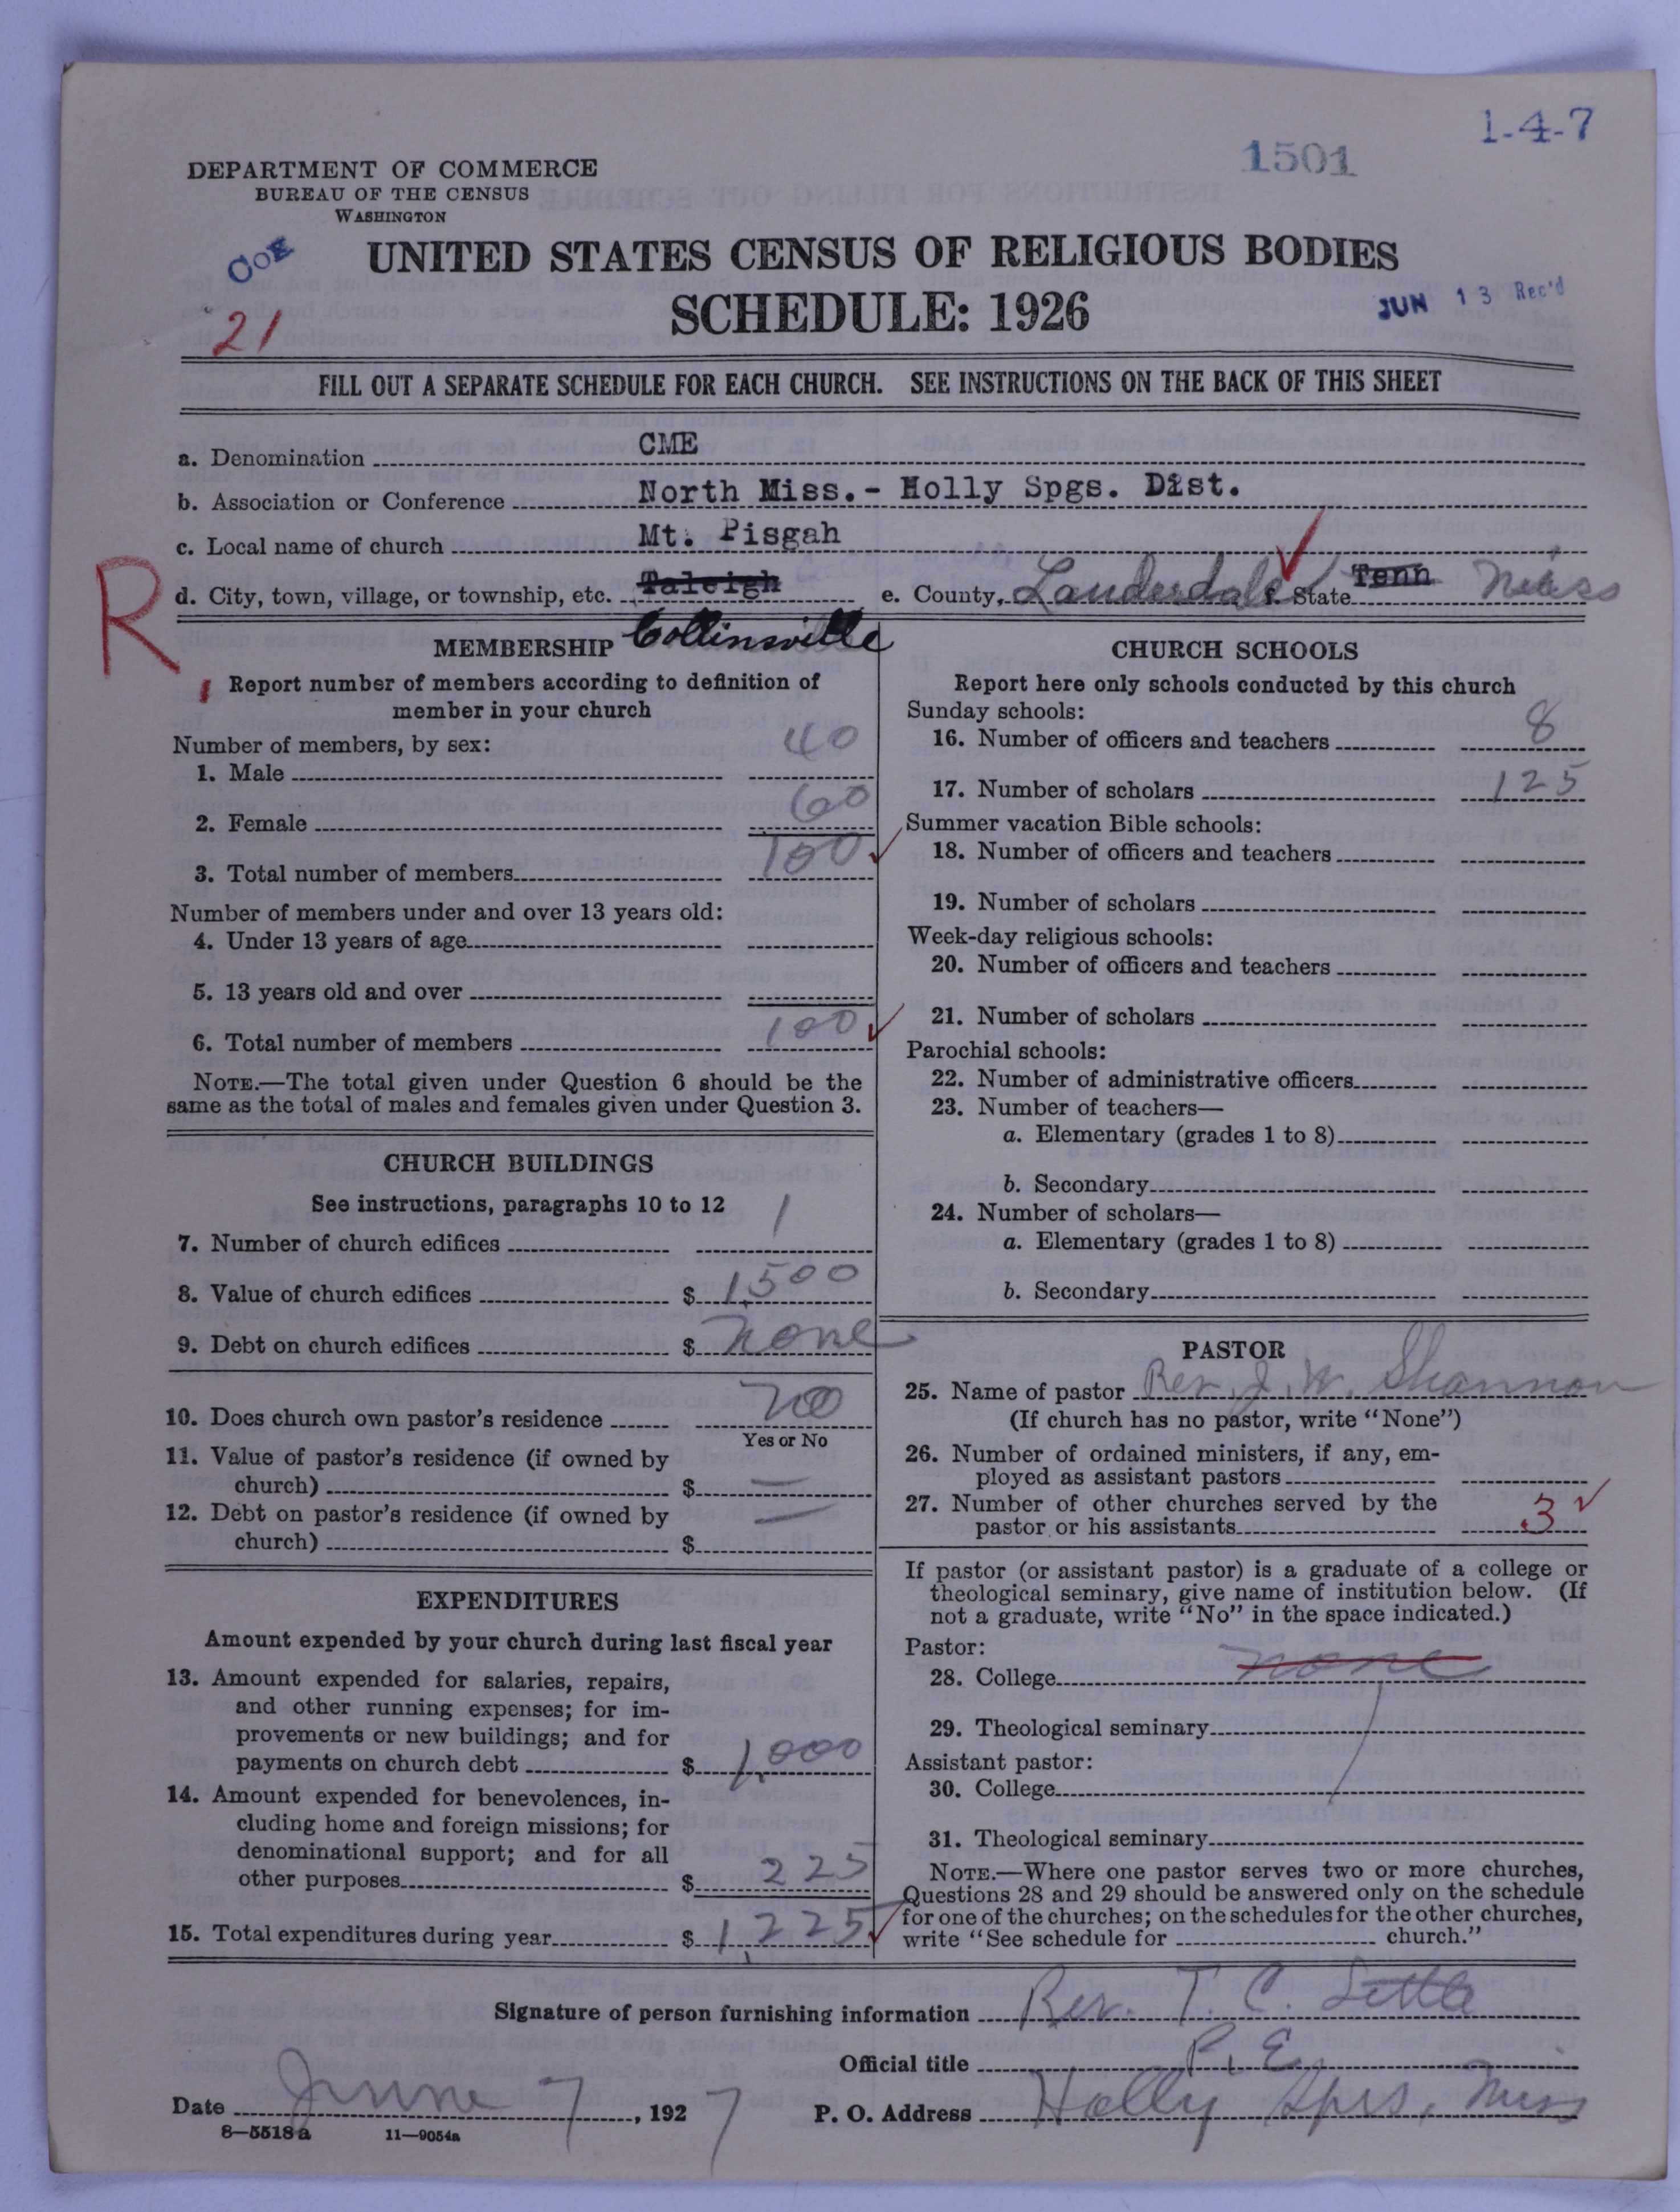 1-4-7
1501
DEPARTMENT OF COMMERCE
BUREAU OF THE CENSUS
WASHINGTON
COE
UNITED STATES CENSUS OF RELIGIOUS BODIES
SCHEDULE: 1926
JUN 13 Rec'd
21
FILL OUT A SEPARATE SCHEDULE FOR EACH CHURCH. SEE INSTRUCTIONS ON THE BACK OF THIS SHEET
a. Denomination CME
b. Association or Conference North Miss.- Holly Spgs. Dist.
c. Local name of church Mt. Pisgah
d. City, town, village, or township, etc. Taleigh e. County, Lauderdale f. State Tenn Miss
R
Collinsville
MEMBERSHIP
Report number of members according to definition of
member in your church
Number of members, by sex:
1. Male 40
2. Female 60
3. Total number of members 100
Number of members under and over 13 years old:
4. Under 13 years of age
5. 13 years old and over
6. Total number of members 100
NOTE.—The total given under Question 6 should be the
same as the total of males and females given under Question 3.
CHURCH BUILDINGS
See instructions, paragraphs 10 to 12
7. Number of church edifices 1
8. Value of church edifices $ 1,500
9. Debt on church edifices $ none
10. Does church own pastor's residence no
Yes or No
11. Value of pastor's residence (if owned by
church) $ —
12. Debt on pastor's residence (if owned by
church) $ —
EXPENDITURES
Amount expended by your church during last fiscal year
13. Amount expended for salaries, repairs,
and other running expenses; for im-
provements or new buildings; and for
payments on church debt $ 1,000
14. Amount expended for benevolences, in-
cluding home and foreign missions; for
denominational support; and for all
other purposes $ 225
15. Total expenditures during year $ 1,225
CHURCH SCHOOLS
Report here only schools conducted by this church
Sunday schools:
16. Number of officers and teachers 8
17. Number of scholars 125
Summer vacation Bible schools:
18. Number of officers and teachers
19. Number of scholars
Week-day religious schools:
20. Number of officers and teachers
21. Number of scholars
Parochial schools:
22. Number of administrative officers
23. Number of teachers—
a. Elementary (grades 1 to 8)
b. Secondary
24. Number of scholars—
a. Elementary (grades 1 to 8)
b. Secondary
PASTOR
25. Name of pastor Rev. J. W. Shannon
(If church has no pastor, write "None")
26. Number of ordained ministers, if any, em-
ployed as assistant pastors
27. Number of other churches served by the
pastor or his assistants 3
If pastor (or assistant pastor) is a graduate of a college or
theological seminary, give name of institution below. (If
not a graduate, write "No" in the space indicated.)
Pastor:
28. College none
29. Theological seminary
Assistant pastor:
30. College
31. Theological seminary
NOTE.—Where one pastor serves two or more churches,
Questions 28 and 29 should be answered only on the schedule
for one of the churches; on the schedules for the other churches,
write "See schedule for church."
Signature of person furnishing information Rev. T. C.
Official title P. E.
Date June 7, 1927 P. O. Address Holly Sprs, Miss
8—5518a 11—9054a